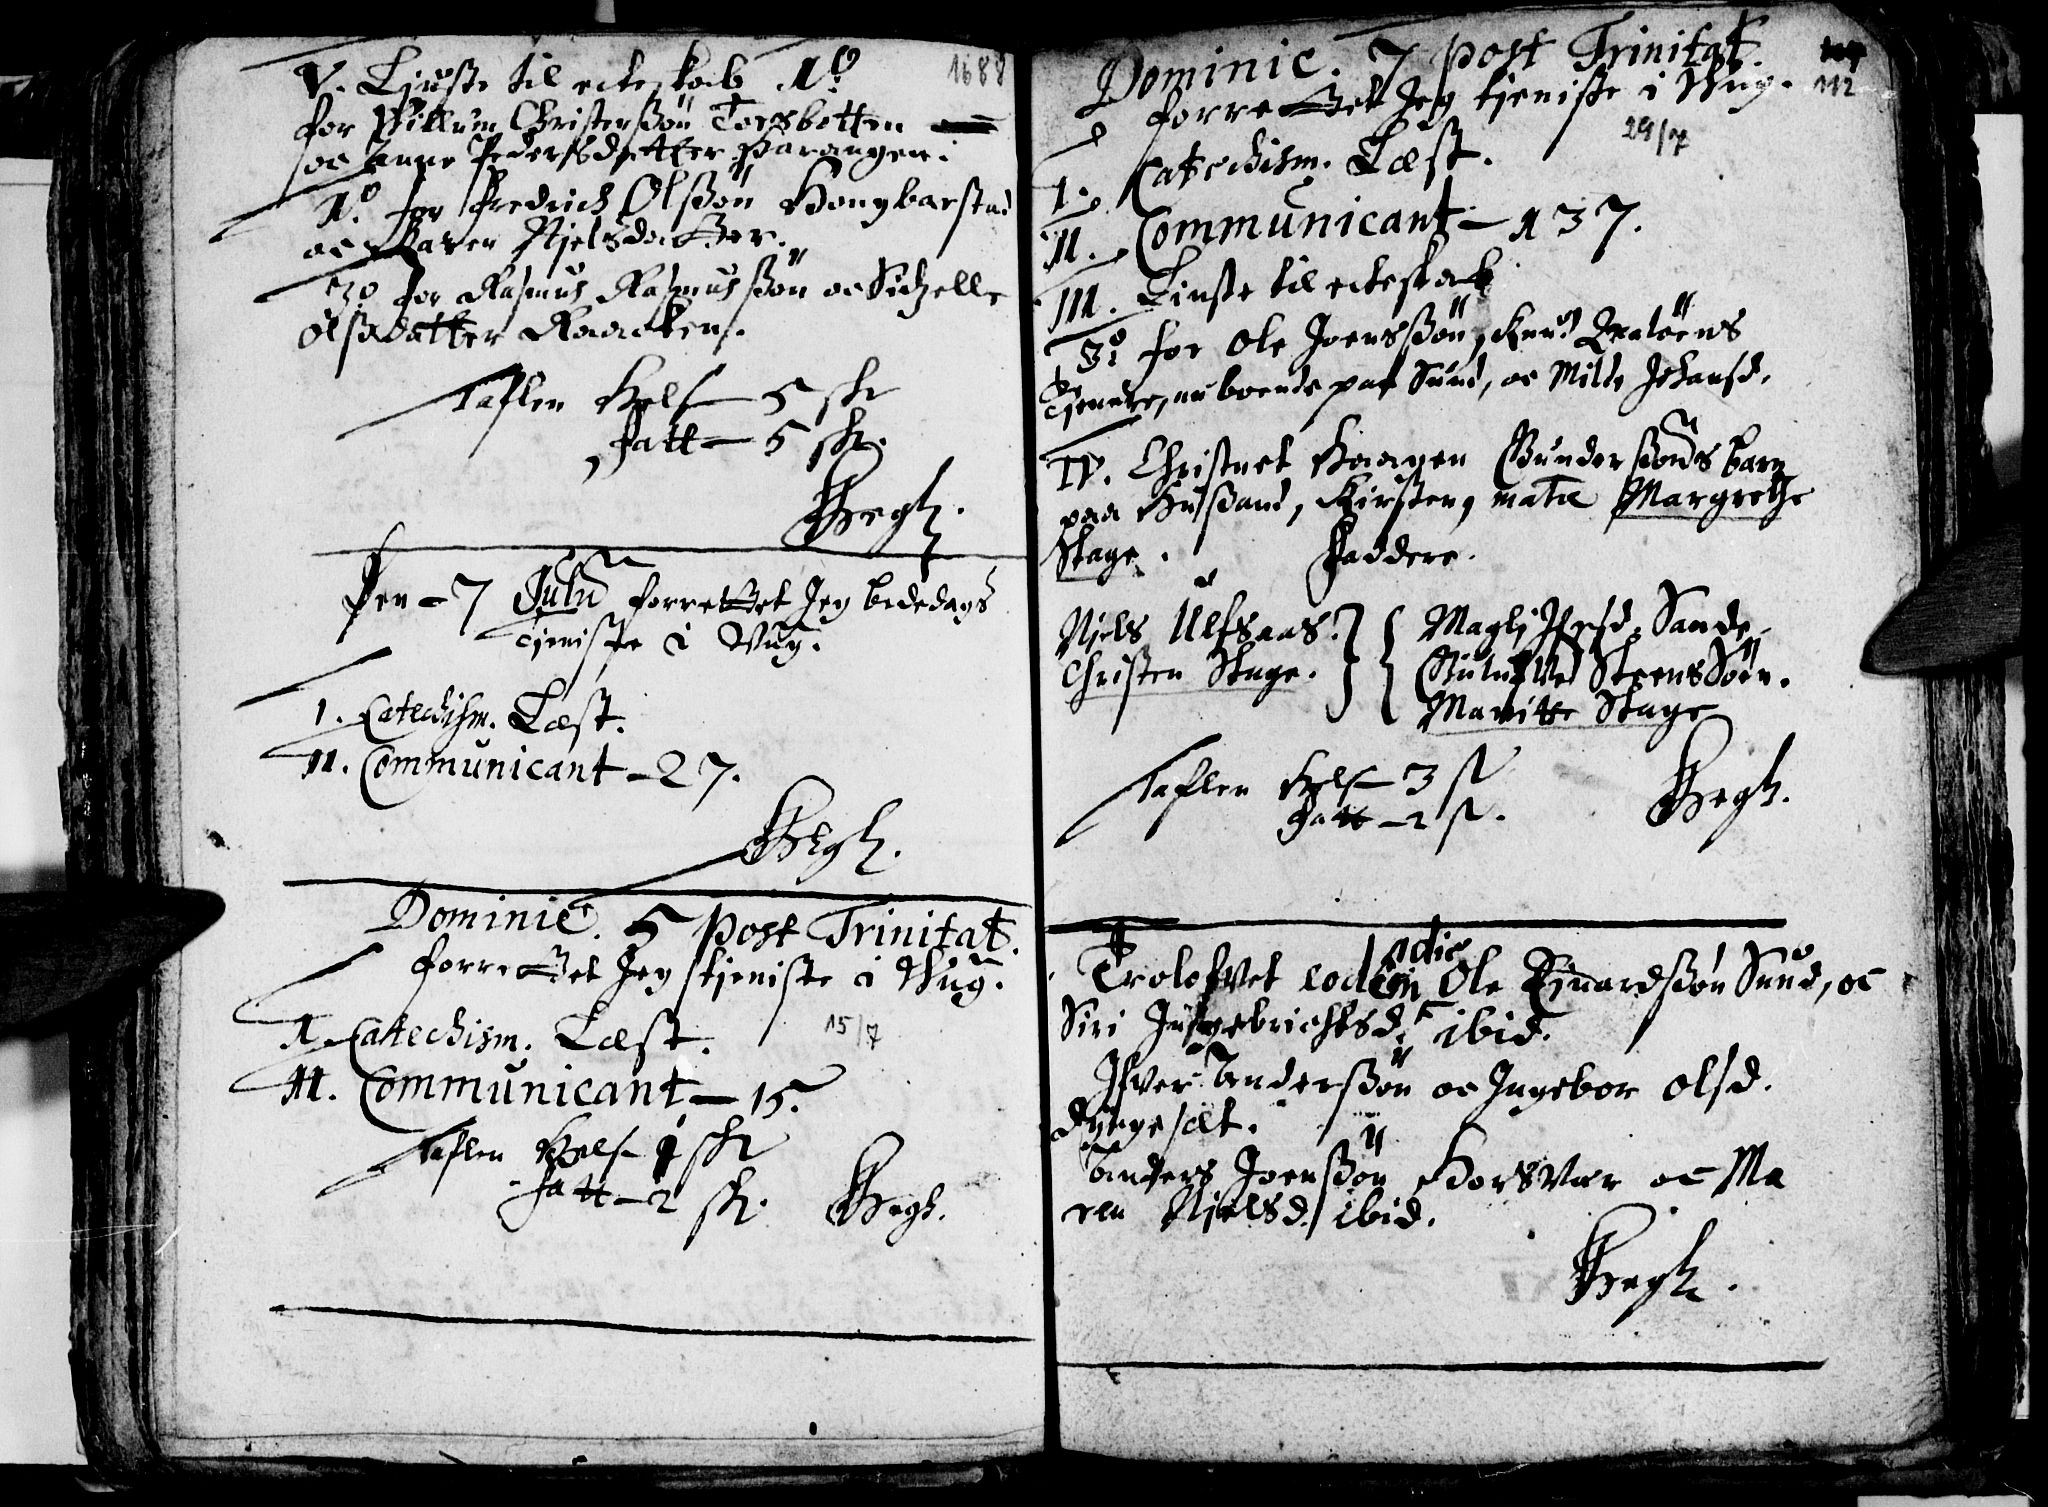 1688
V. Liuste til ecteskab 1º
for Willum Christenssön Torsbotten
oc Anne Pedersdatter Parangen.
1º for Fredrich Olssön Hongbarstad
oc Karen Njelsdatter.
3º for Rasmus Rasmussön oc Sidzelle
Olssdatter Raacken.
Taflen Helf — 5 sk
Fatt — 5 sk.
Hegh.
Den — 7 Julii forrettet Jeg bededags
tjeniste i Wug.
I. Catechism. Læst.
II. Communicant — 27.
Hegh.
Dominic. 5 post Trinitat.
forrettet Jeg tjeniste i Wug.
I. Catechism. Læst. 15/7
II. Communicant — 15.
Taflen Helf 1 sk
Fatt — 2 sk. Hegh.
Dominic. 7 post Trinitat.
112
forrettet Jeg tjeniste i Wug.
29/7
I. Catechism. Læst.
II. Communicant — 137.
III. Liuste til ecteskab
3º for Ole Joenssön, Knud
tjenere, nu boende paa Sund, oc Mille Johansd.
IV. Christnet Haagen Gunderssöns barn
paa Hussand, Kirsten, mata Margrethe
Skage. Faddere.
Njels Ulfsaas.
Christen Skage.
Magli Ifersd. Sande
Steensøn.
Maritte Skage
Taflen Helf 3 s
Fatt — 2 s. Hegh.
Trolofvet eodem die Ole Ejnardssön Sund, oc
Siri Ingebrichtsd. ibid.
Ifver Anderssön oc Ingebor Olsd.
Dyngesæt.
Anders Joenssön Horsvær oc Ma
ren Njelsd. ibid.
Hegh.